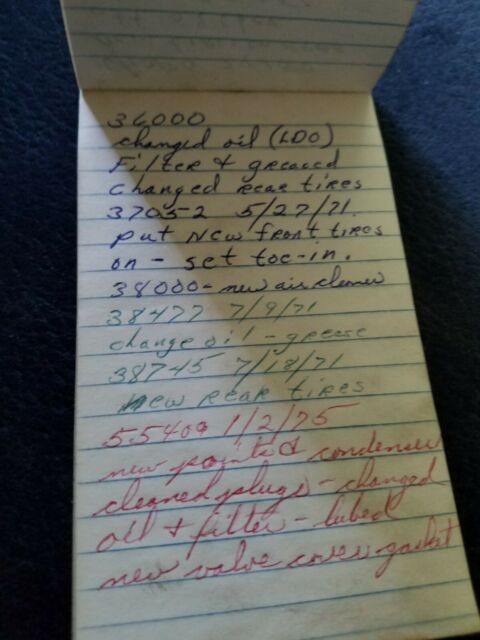 36000
changed oil (LDO)
Filter & greased
changed rear tires
37052 5/27/71.
put New front tires
on - set toe-in.
38000 - new air cleaner
38477 7/9/71
change oil - grease
38745 7/18/71
New rear tires
55400 1/2/75
new points & condenser
cleaned plugs - changed
oil & filter - lubed
new valve cover gasket